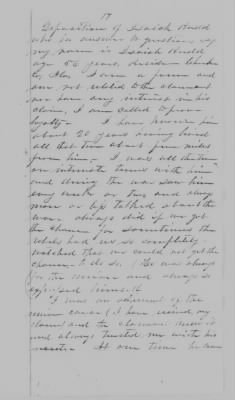 17
Deposition of Isaiah Would
who in answer to questions says
my name is Isaiah Would
age 56 years, reside
Co, Ala, I own a farm and
am not related to the claimant
nor have any interest in his
claim, I am called to prove his
loyalty - I have known him
about 20 years having lived
all that time about five miles
from him - I was all the time
on intimate terms with him
and during the war saw him
every week or two and always
more or less talked about the
war always did if we got
the chance for sometimes the
rebels had us so completely
watched that we could not get the
chance to do so. He was always
for the union and always so
expressed himself
I was an adherent of the
union cause (I have
claim) and the claimant knew it
and always trusted me with his
At one time he was